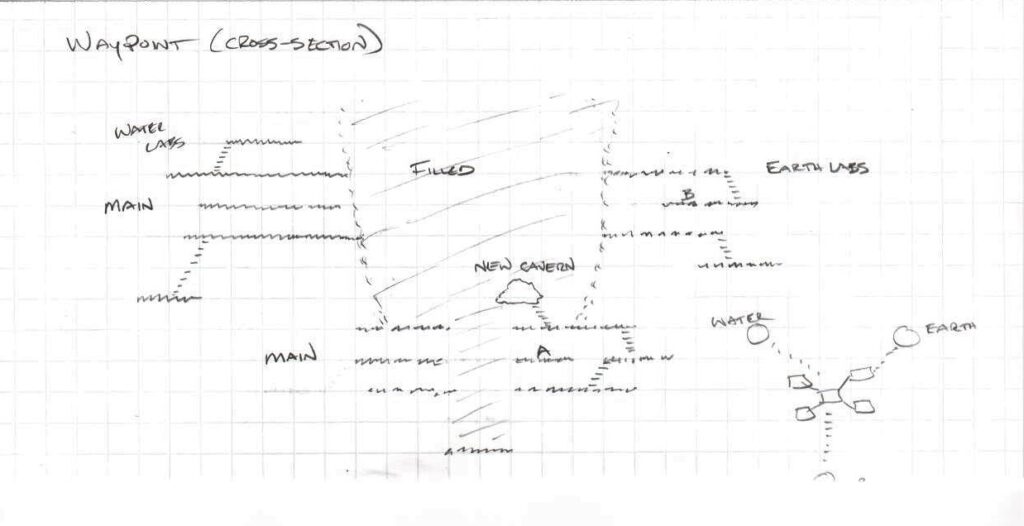 WAYPOINT (CROSS-SECTION)
WATER
LABS
FILLED
EARTH LABS
MAIN
B
NEW CAVERN
WATER
EARTH
MAIN
A